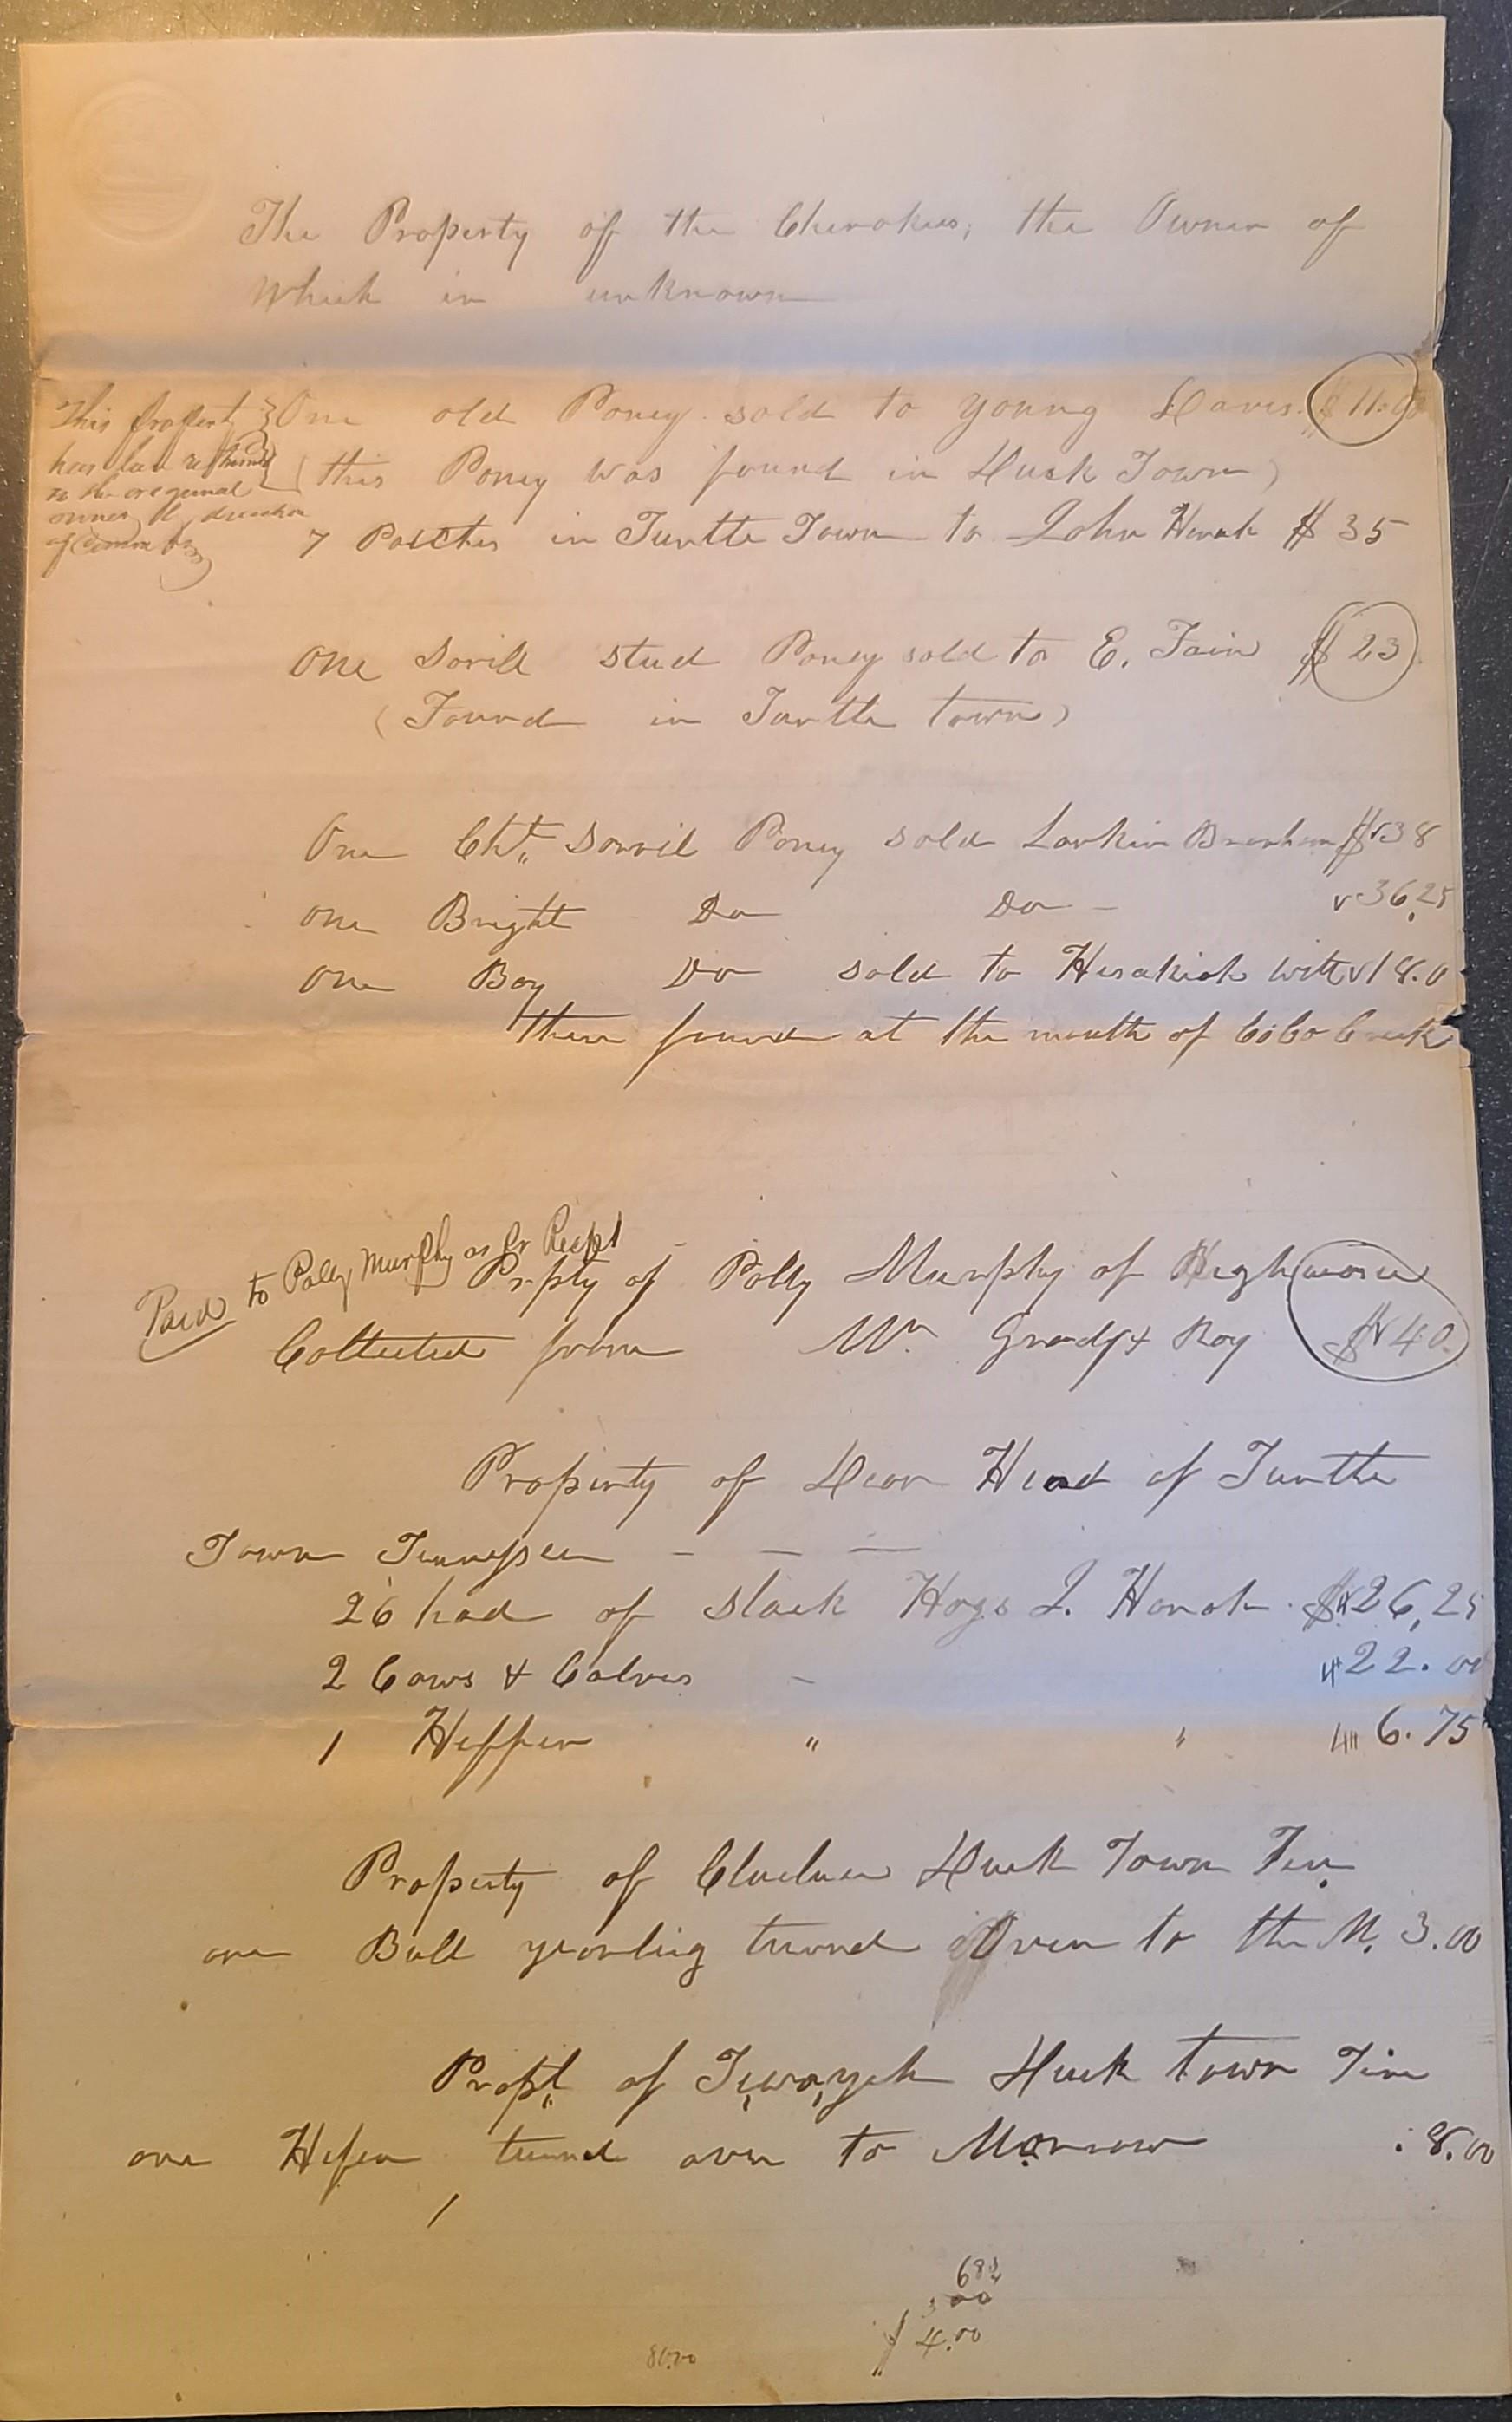 The Property of the Cherokees, the Owner of
Which is unknown
One old Poney sold to young Davis. $ 11.00
(this Poney was found in Duck Town)
This property
has been returned
to the oreginal
owner by direction
of Comm
7 Patches in Turtle Town to John Hanah $ 35
One Sorill stud Poney sold to E. Tain $ 23
(Found in Turtle town)
One Cht. Sorril Poney sold Larkin $ 38
one Bright Do Do - 36.25
one Bay Do sold to Hesakiah with 18.0
these found at the mouth of CoCo Creek
Paid to Polly Murphy as pr Recpt
Prpty of Polly Murphy of Highwasee
Collected from Wm Grady & Roy $ 40.
Property of Dear Head of Turtle
Town Tennessee - - -
26 had of stock Hogs J. Hanah $ 26,25
2 Cows & Calves - 22.00
1 Heffer " " 6.75
Property of Duck Town Ten.
one Bull yearling turned Over to the M. 3.00
Propt. of Duck town Tin
one Hefer turned over to Morrow 8.00
4.00